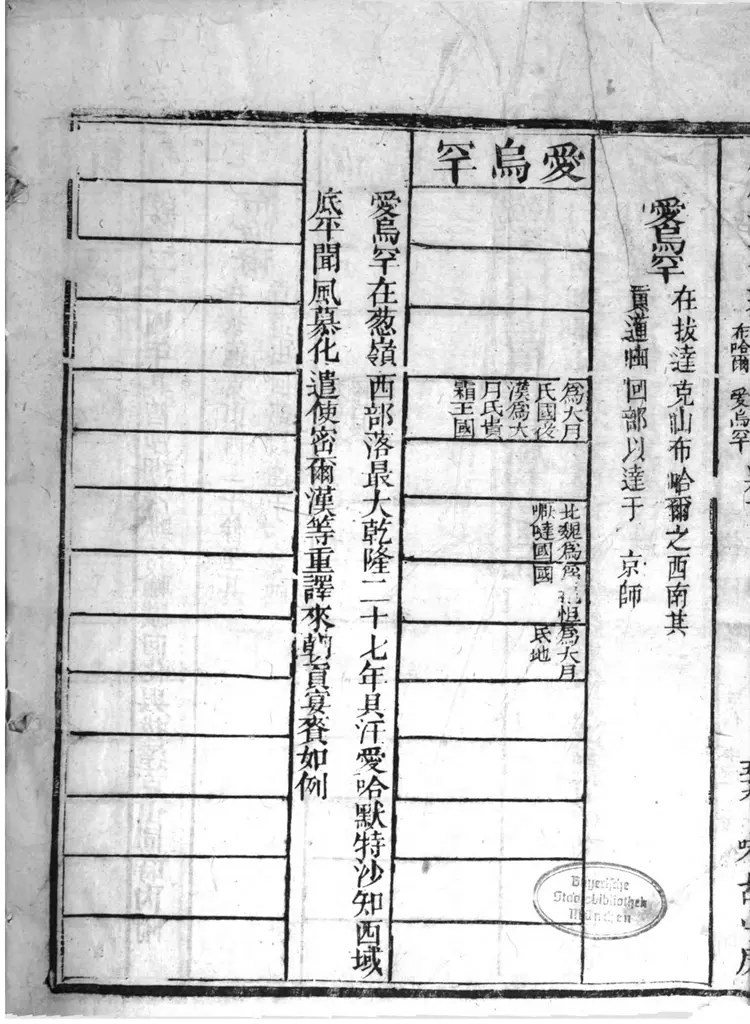 布哈爾
愛烏罕
愛烏罕
在拔達克山布哈爾之西南其
貢道由回部以達于 京師
愛烏罕
爲大月
氏國後
漢爲大
月氏貴
霜王國
北魏爲
嚈噠國
國
恒爲大月
氏地
愛烏罕在葱嶺西部落最大乾隆二十七年其汗愛哈默特沙知西域
底平聞風慕化遣使密爾漢等重譯來朝貢宴賚如例
Bayerische
Staatsbibliothek
München